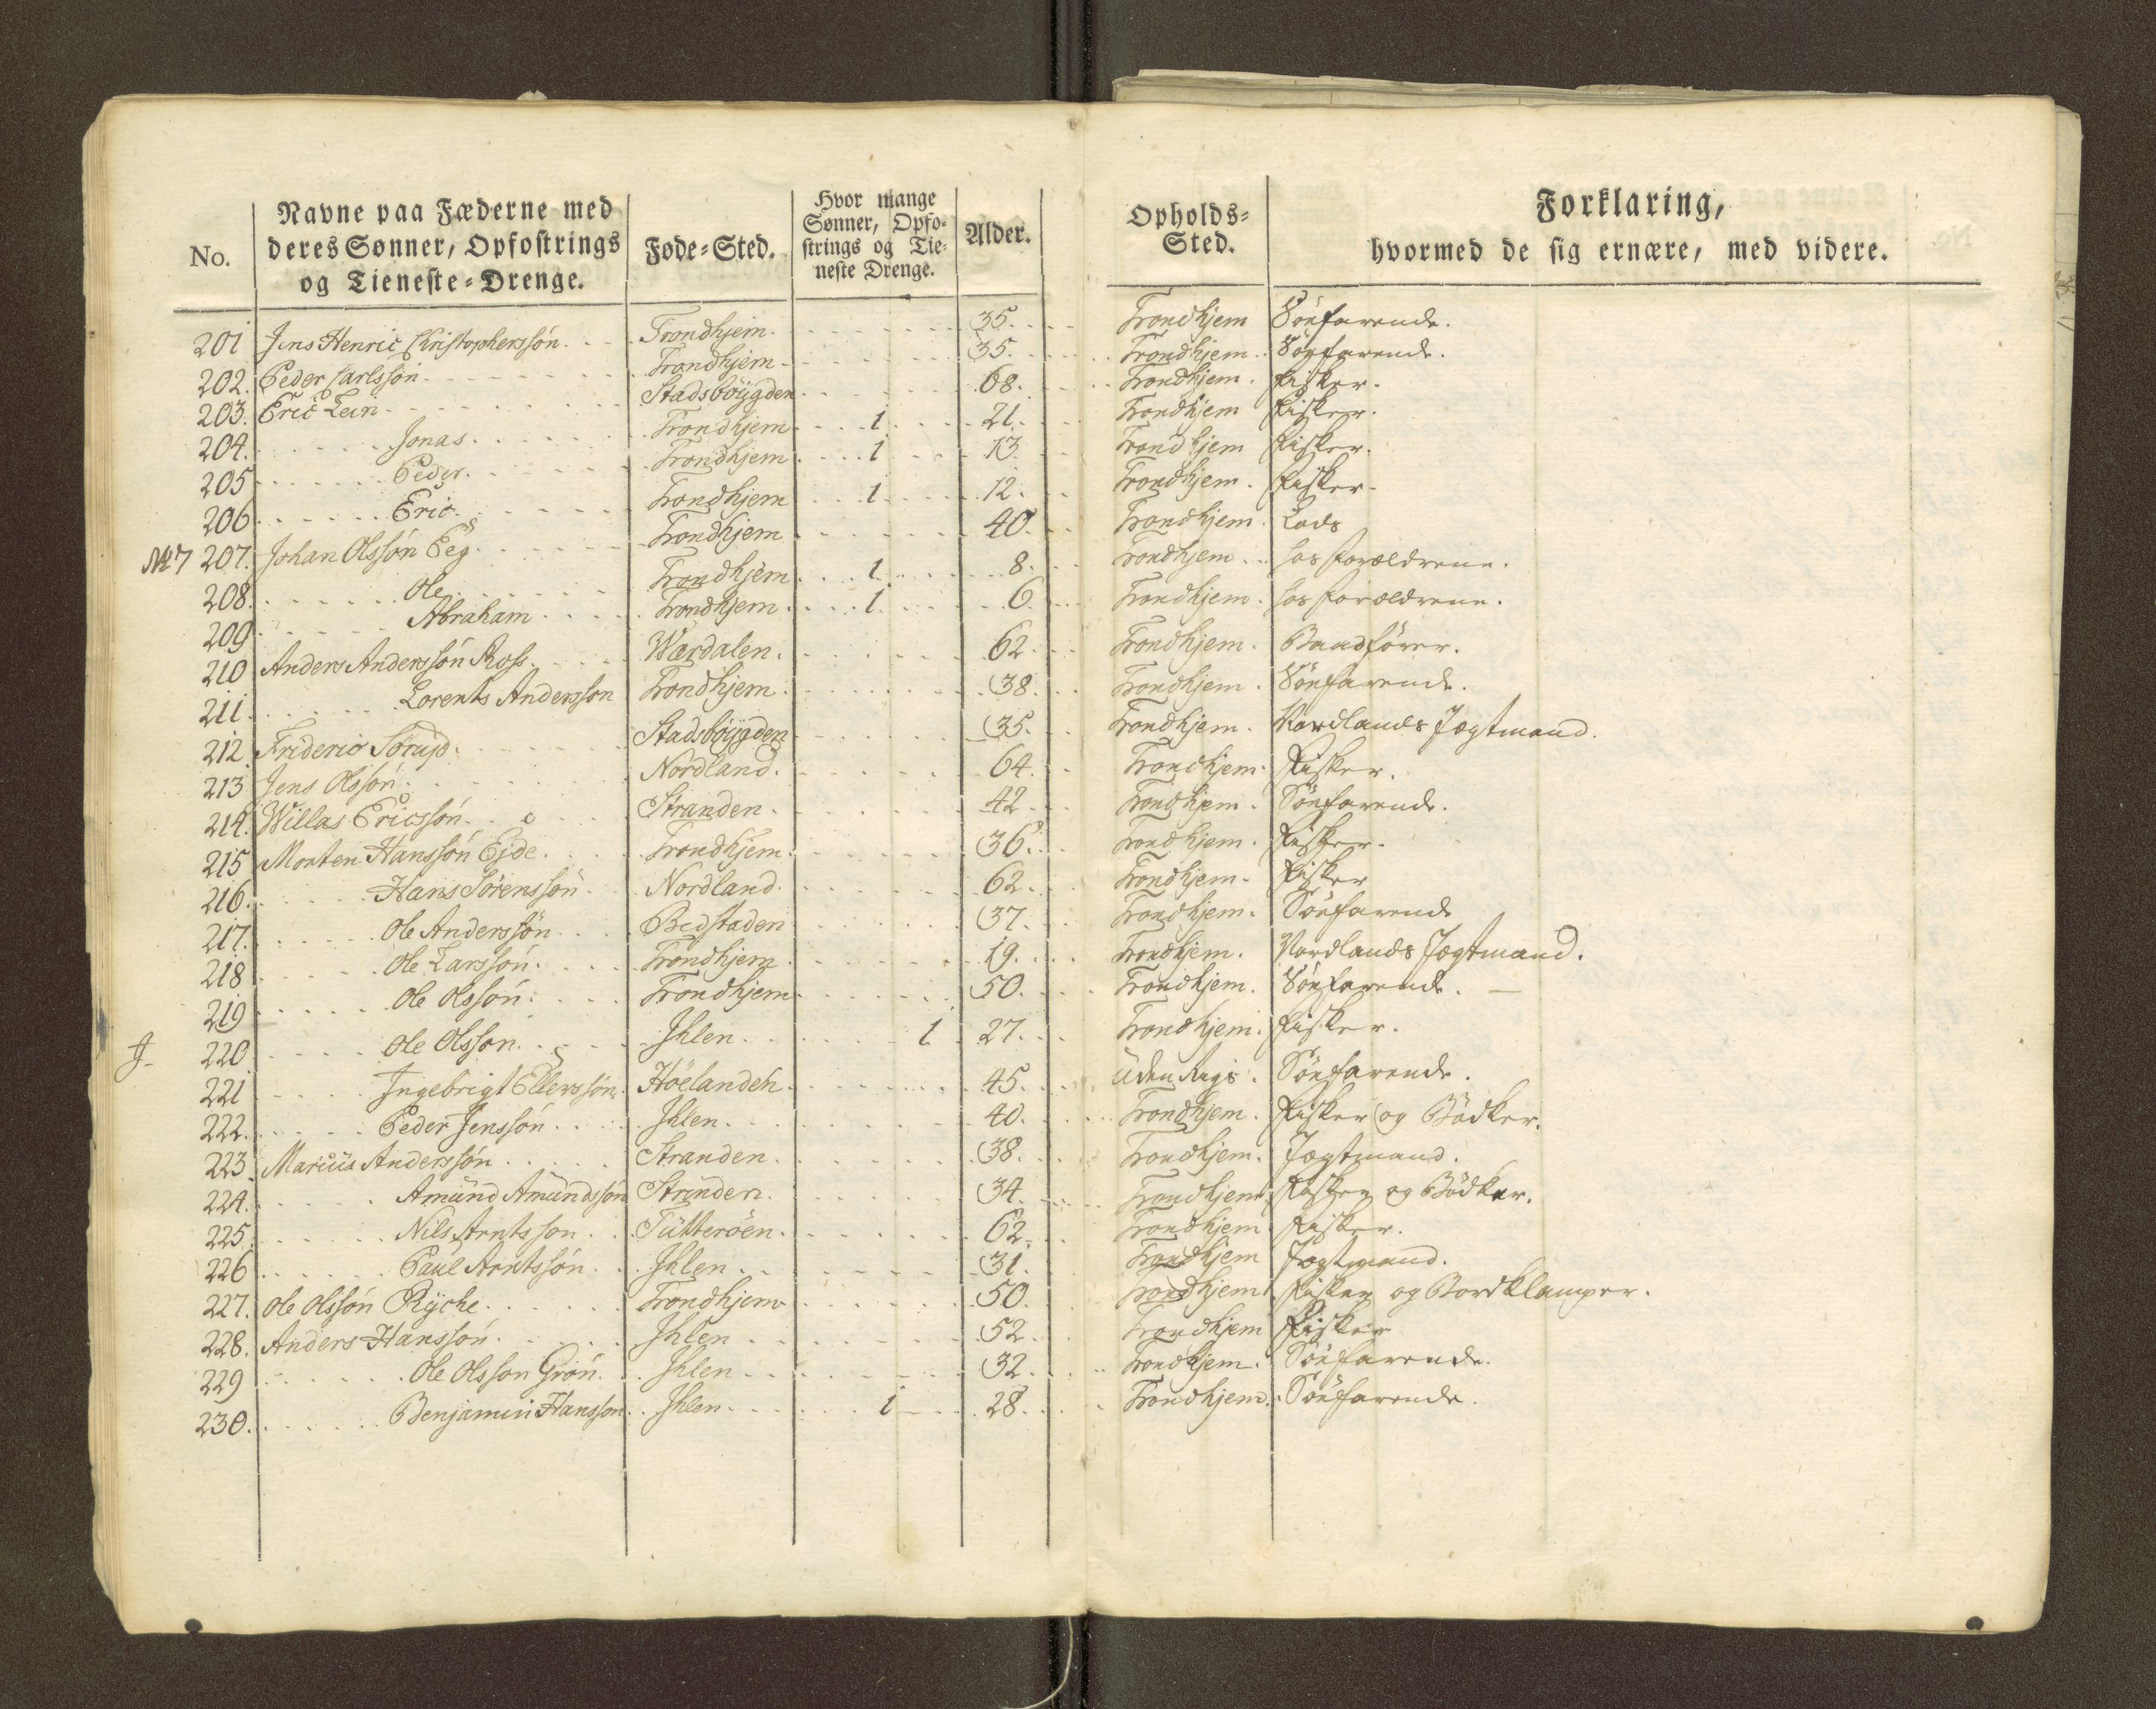 No. | Navne paa Fæderne med deres Sønner, Opfostrings og Tieneste-Drenge. | Føde-Sted. | Hvor mange Sønner, Opfostrings og Tieneste Drenge. | Alder. | Opholds-Sted. | Forklaring, hvormed de sig ernære, med videre.
201 Jens Henric Christophersøn. Trondhjem. 35. Trondhjem Söefarende.
202. Peder Carlssön Trondhjem 35. Trondhjem. Söefarende.
203. Eric Lein Stadsböygden 68. Trondhjem. Fisker.
204. Jonas. Trondhjem 1 21. Trondhjem Fisker.
205 Peder. Trondhjem 1 13 Trondhjem Fisker.
206 Eric Trondhjem 1 12. Trondhjem. Fisker.
No 7 207. Johan Olssön Peg. Trondhjem 40. Trondhjem. Lods
208. Ole Trondhjem 1 8. Trondhjem. hos Forældrene.
209 Abraham Trondhjem. 1 6. Trondhjem. hos Forældrene.
210 Anders Anderssön Ross. Wærdalen. 62 Trondhjem. Baadförer.
211. Lorents Andersson Trondhjem. 38. Trondhjem. Söefarende.
212. Frideric Sörup. Stadsböygden 35. Trondhjem. Nordlands Jægtmand.
213 Jens Olssön. Nordland. 64. Trondhjem. Fisker.
214. Willas Ericssön. Stranden. 42. Trondhjem. Söefarende.
215 Morten Hanssön Ejde. Trondhjem. 36. Trondhjem. Fisker.
216. Hans Sörenssön. Nordland. 62. Trondhjem. Fisker
217. Ole Anderssön Bedstaden 37. Trondhjem. Söefarende
218 Ole Larssön. Trondhjem 19. Trondhjem. Nordlands Jægtmand.
219 Ole Olssön. Trondhjem 50. Trondhjem. Söefarende.
220 Ole Olsson. Ihlen. 1 27. Trondhjem. Fisker.
221 Ingebrigt Ellerssön. Höelandeh. 45. Uden Rigs. Söefarende.
222. Peder Jenssön. Ihlen. 40. Trondhjem. Fisker og Bödker.
223 Marcus Anderssön Stranden. 38. Trondhjem. Jægtmand.
224. Amund Amundssön Strinden. 34. Trondhjem Fisker og Bödker.
225 Nils Arntsson. Tutteröen. 62. Trondhjem Fisker.
226 Paul Arntssön. Ihlen. 31. Trondhjem Jægtmand.
227. Ole Olssön Rÿche. Trondhjem 50. Trondhjem Fisker og Bordklamper.
228. Anders Hanssön. Ihlen 52. Trondhjem Fisker
229 Ole Olsson Grön. Ihlen 32. Trondhjem. Söefarende.
230. Benjamin Hansson. Ihlen. 1 28. Trondhjem. Söefarende.